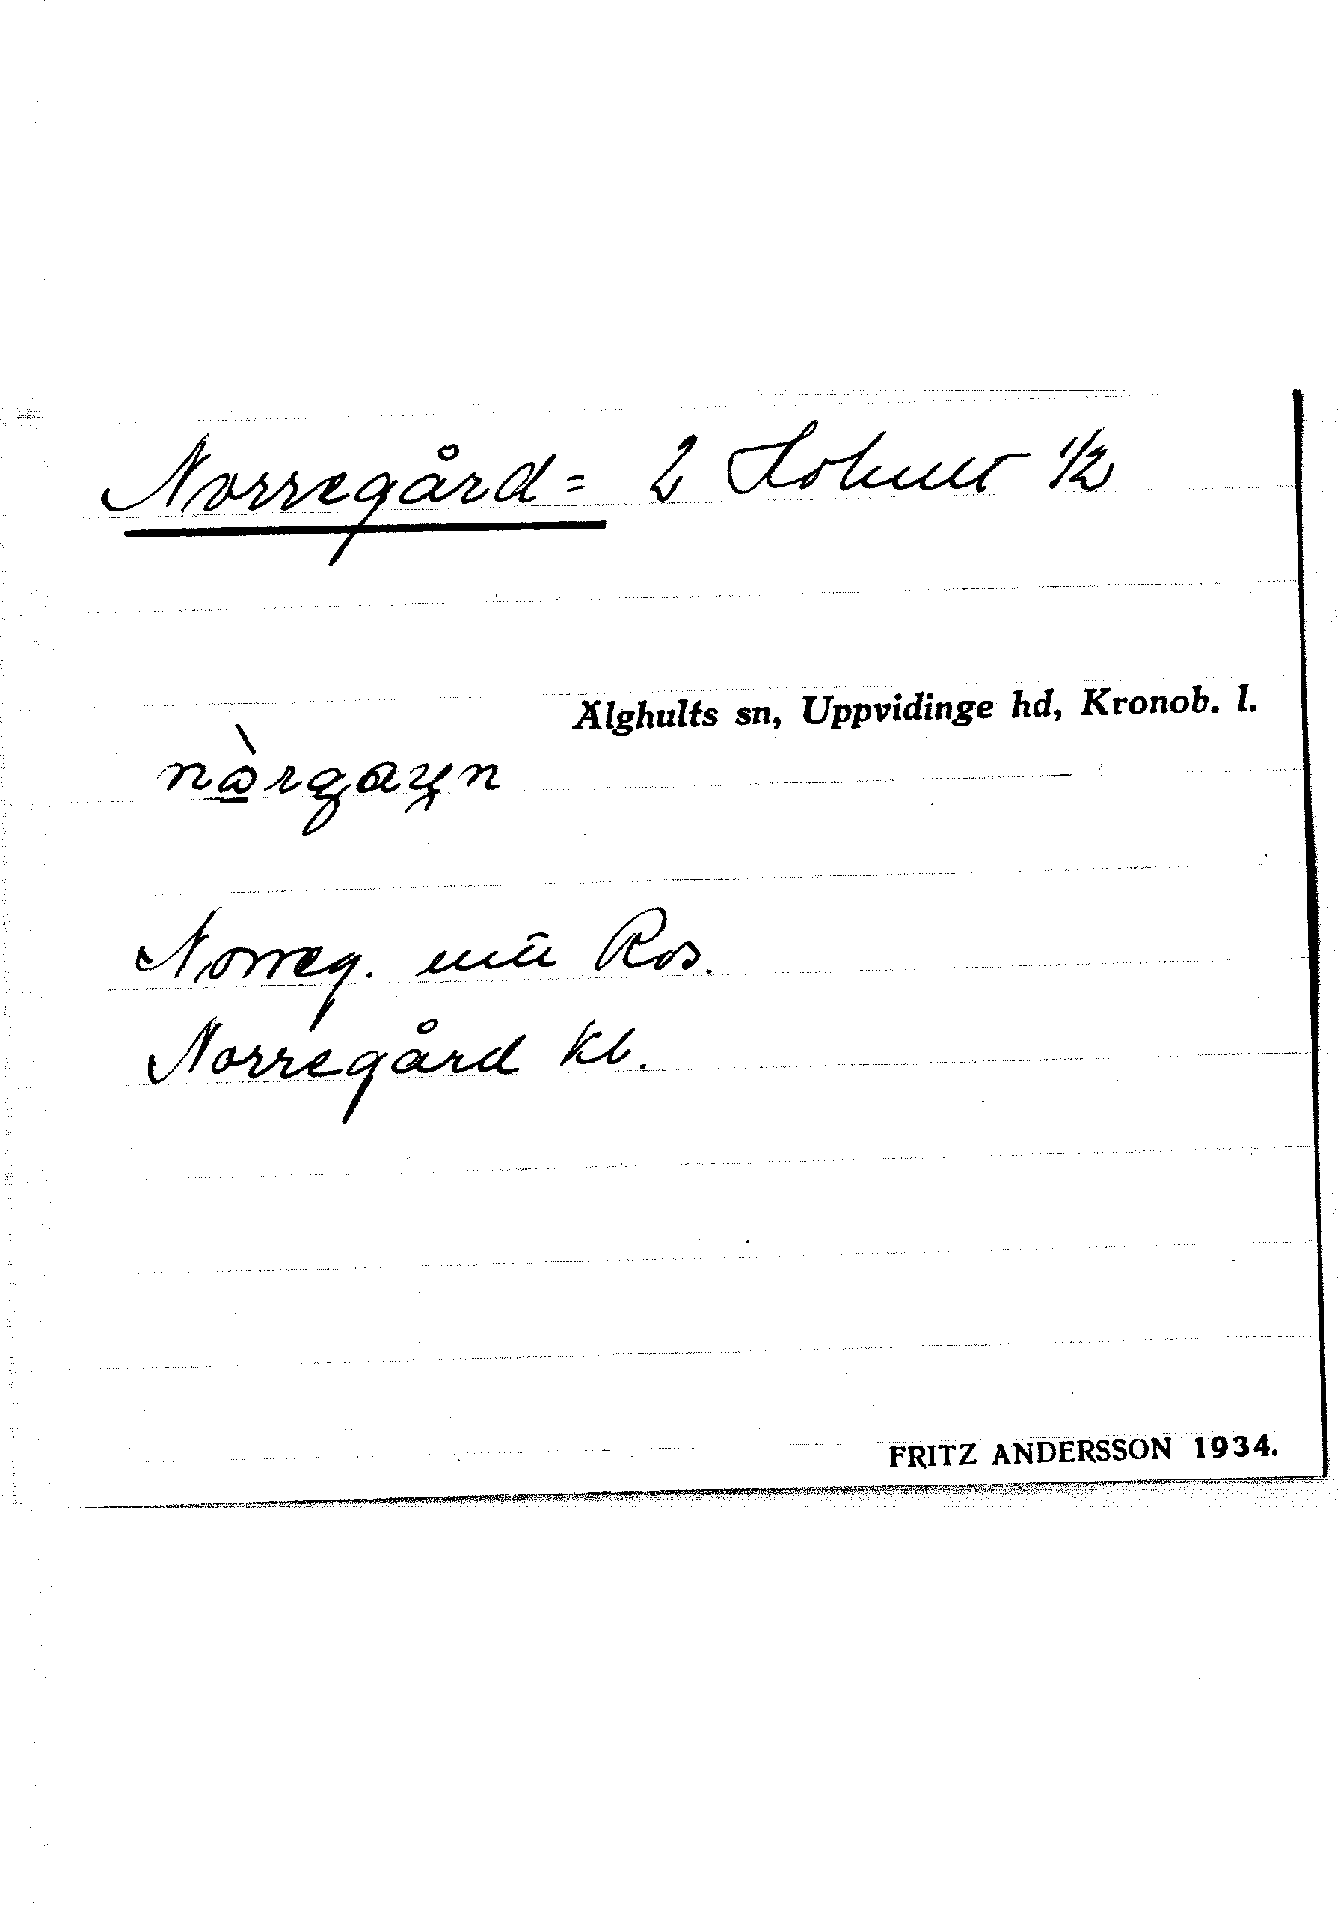 Norregård = 2 Kohult 1/2
Älghults sn, Uppvidinge hd, Kronob. l.
Norreg. Ros.
Norregård kb.
FRITZ ANDERSSON 1934.